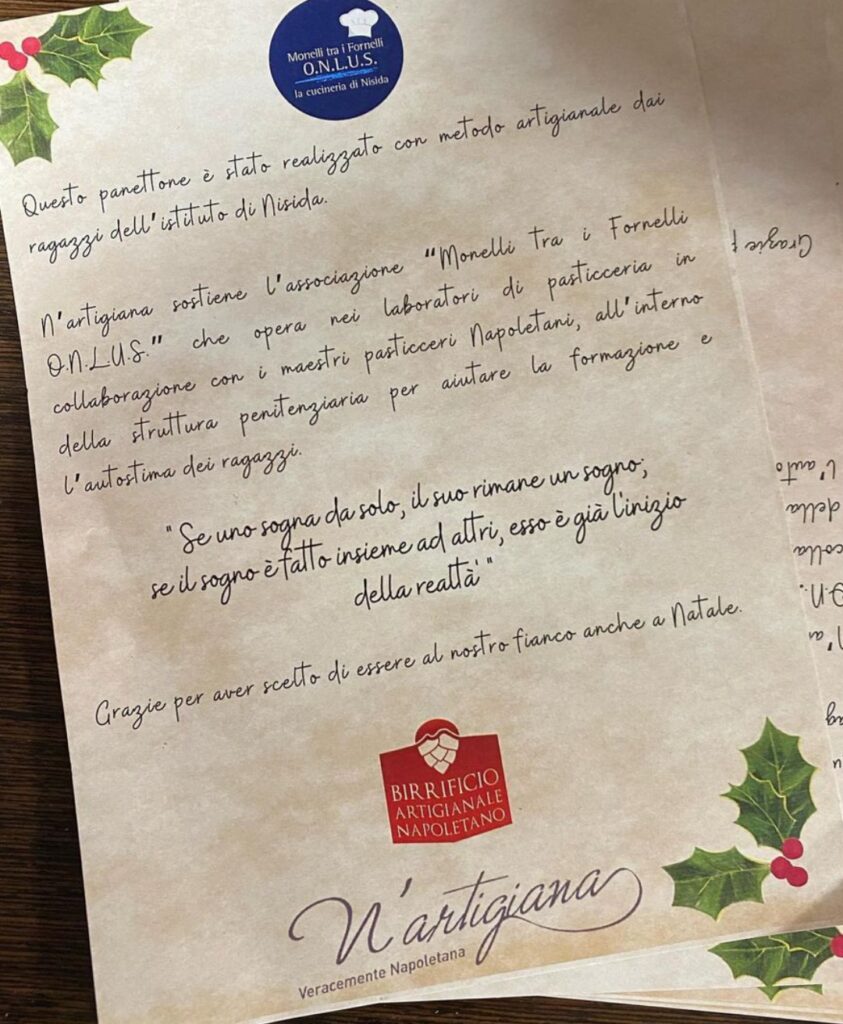 Monelli tra i Fornelli
O.N.L.U.S.
la cucineria di Nisida
Questo panettone è stato realizzato con metodo artigianale dai
ragazzi dell'istituto di Nisida.
N'artigiana sostiene l'associazione "Monelli tra i Fornelli
O.N.L.U.S." che opera nei laboratori di pasticceria in
collaborazione con i maestri pasticceri Napoletani, all'interno
della struttura penitenziaria per aiutare la formazione e
l'autostima dei ragazzi.
" Se uno sogna da solo, il suo rimane un sogno;
se il sogno è fatto insieme ad altri, esso è già l'inizio
della realtà "
Grazie per aver scelto di essere al nostro fianco anche a Natale.
BIRRIFICIO
ARTIGIANALE
NAPOLETANO
N'artigiana
Veracemente Napoletana
Grazie
l'auto
della
colla
O.N.